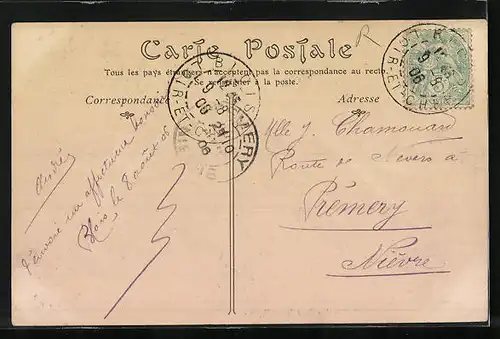 R
Carte Postale
Tous les pays étrangers n'acceptent pas la correspondance au recto.
Se renseigner à la poste.
Correspondance
Adresse
Mlle J. Chamouard
Route de Nevers à
Prémery
Nièvre
J'envoie un affectueux bonsoir
Blois le 8 août 06
André